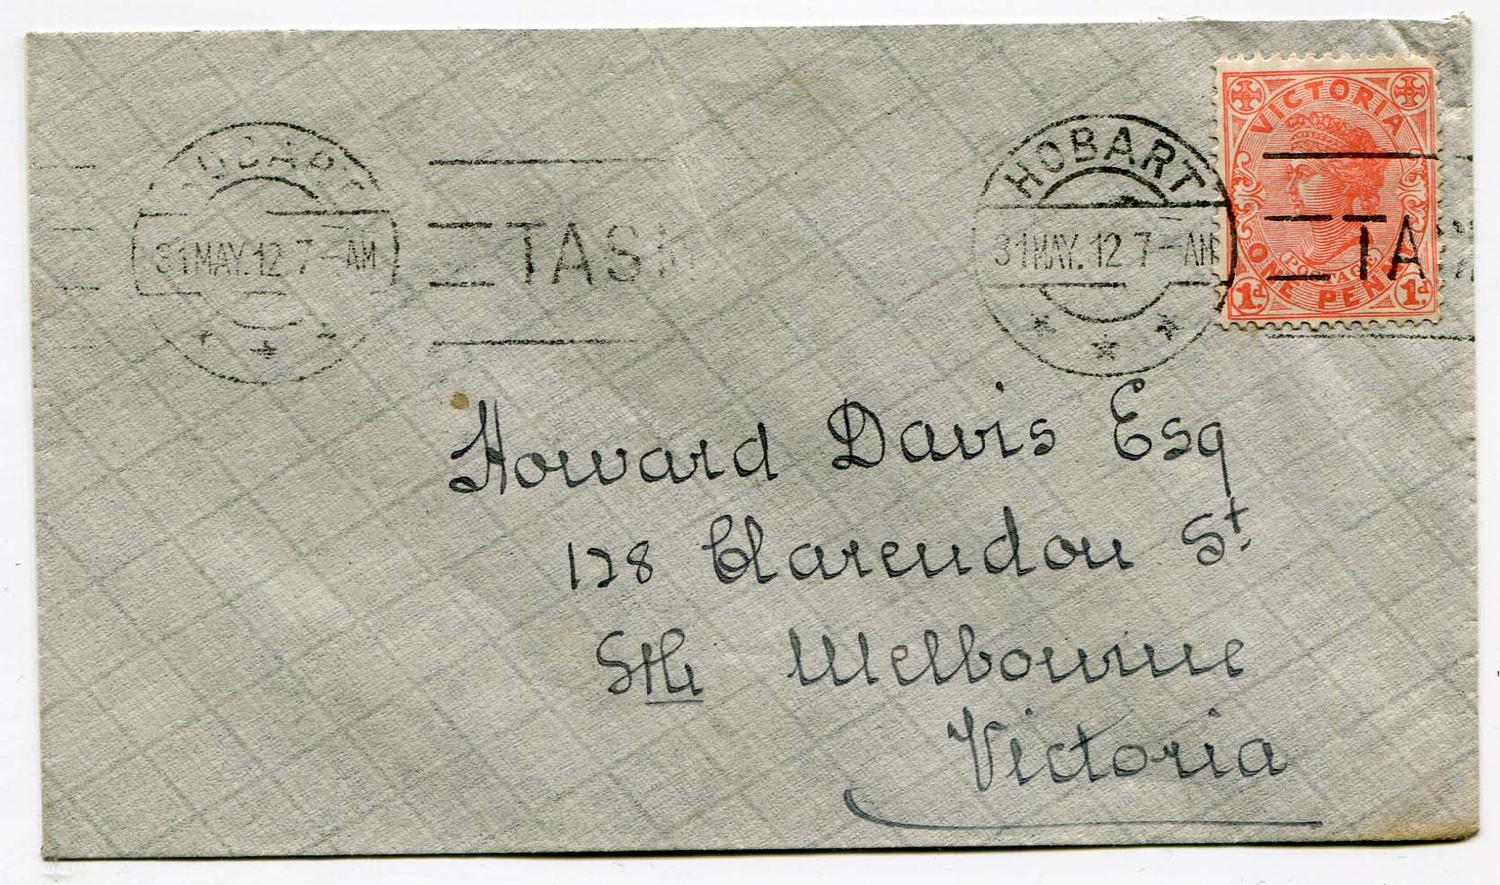 HOBART
31 MAY. 12 7 - AM
TAS
HOBART
31 MAY. 12 7 - AM
TA
VICTORIA
POSTAGE
ONE PENNY
1d 1d
Howard Davis Esq
128 Clarendon St
Sth Melbourne
Victoria